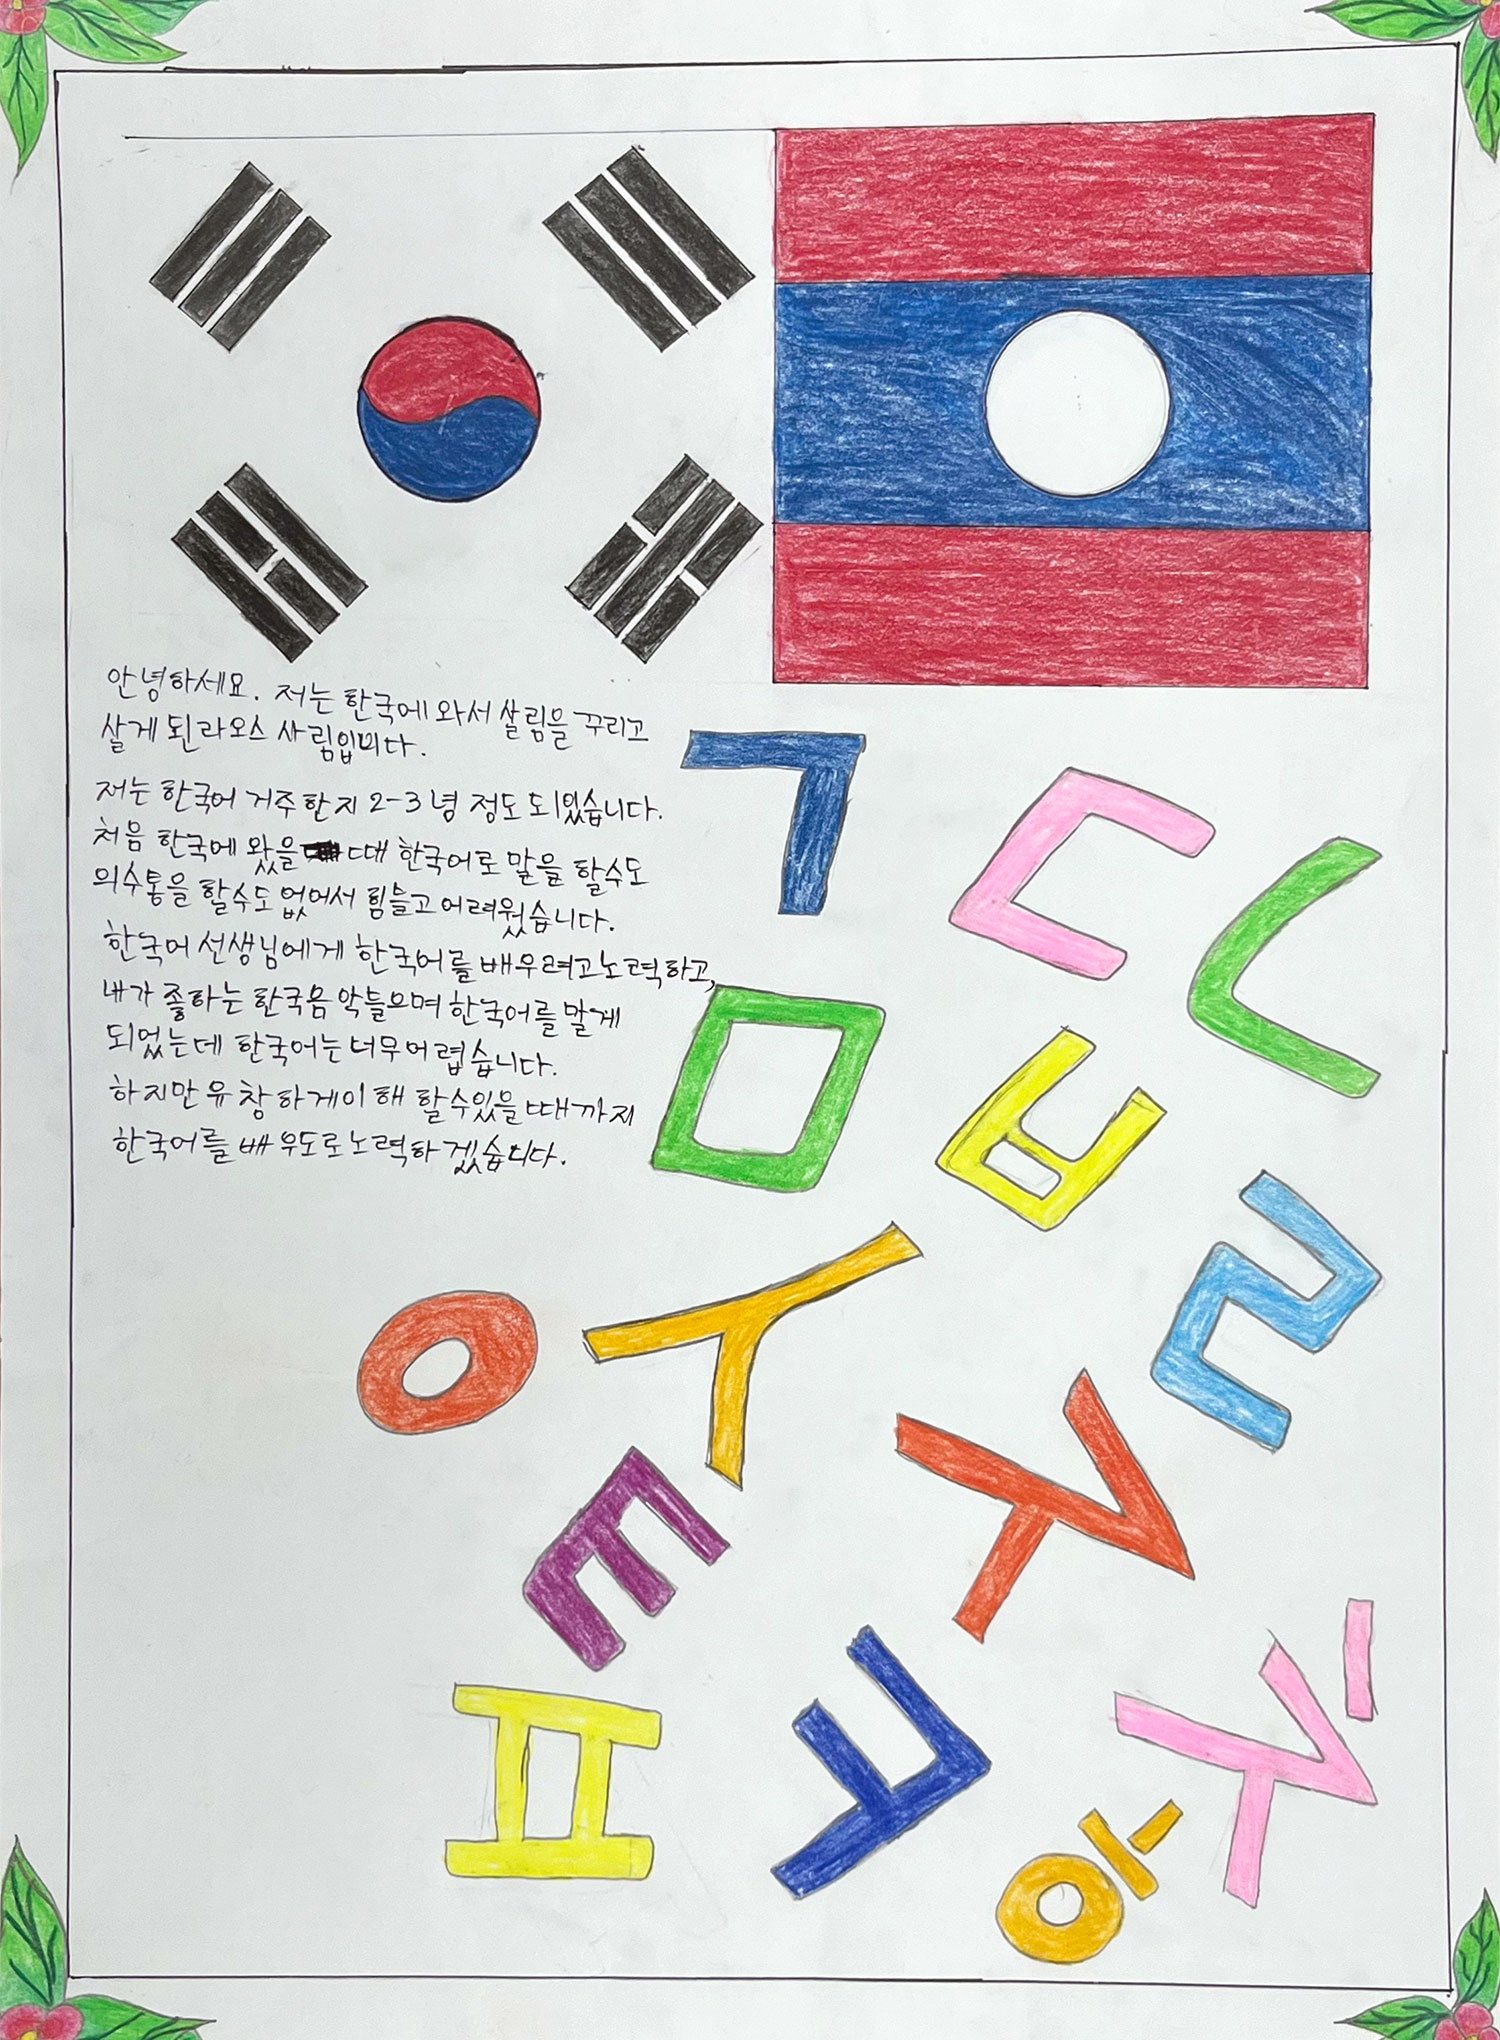 안녕하세요. 저는 한국에 와서 살림을 꾸리고
살게 된 라오스 사림입믜다.
저는 한국어 거주한지 2-3 녕 정도 되있습니다.
처음 한국에 왔을 때 한국어로 말을 할수도
의수통을 할수도 없어서 힘들고 어려웠습니다.
한국어 선생님에게 한국어를 배우려고 노력하고,
내가 좋하는 한국음 악들으며 한국어를 말게
되었는데 한국어는 너무 어렵습니다.
하지만 유창하게 이해 할수있을 때까지
한국어를 배우도로 노력하겠습니다.
ㄱ
ㄷ
ㄴ
ㅁ
ㅂ
ㄹ
ㅇ
ㅅ
ㅈ
ㅌ
ㅊ
ㅍ
ㅋ
아